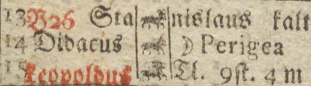 13 B 26 Sta nislaus kalt
14 Didacus ☽ Perigea
15 Leopoldus U. 9st. 4 m